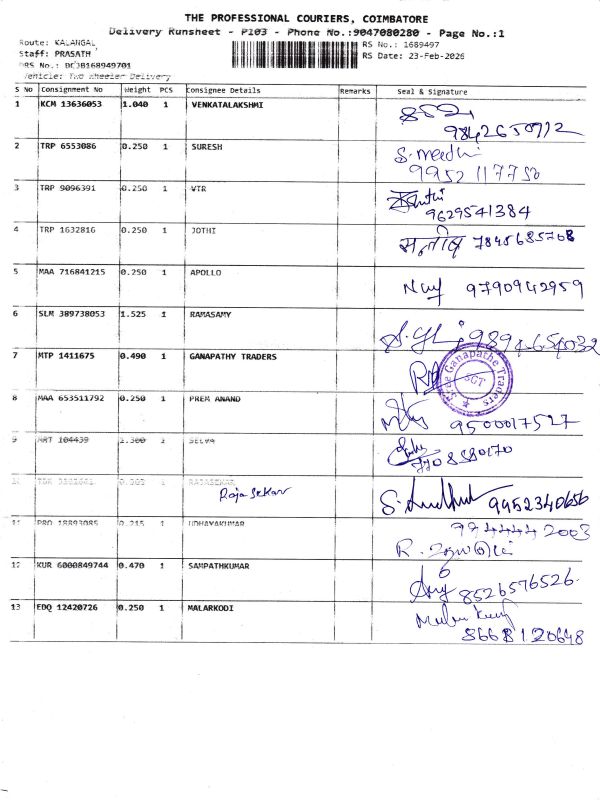 THE PROFESSIONAL COURIERS, COIMBATORE
Delivery Runsheet - P103 - Phone No.:9047080280 - Page No.:1
Route: KALANGAL
Staff: PRASATH
DRS No.: DCJB168949701
Vehicle: Two Wheeler Delivery
RS No.: 1689497
RS Date: 23-Feb-2026
S No Consignment No Weight PCS Consignee Details Remarks Seal & Signature
1 KCM 13636053 1.040 1 VENKATALAKSHMI
9842650912
2 TRP 6553086 0.250 1 SURESH
9952117750
3 TRP 9096391 0.250 1 VTR
9629541384
4 TRP 1632816 0.250 1 JOTHI
7845685708
5 MAA 716841215 0.250 1 APOLLO
9790942959
6 SLM 389738053 1.525 1 RAMASAMY
7 MTP 1411675 0.490 1 GANAPATHY TRADERS
Sree Ganapathe Traders
SGT
8 MAA 653511792 0.250 1 PREM ANAND
9500017527
9 MRT 104439 1.300 1 SELVA
10 1 RAJASEKAR
Raja Sekar
9952340656
11 PRO 18893085 0.215 1 UDHAYAKUMAR
12 KUR 6000849744 0.470 1 SAMPATHKUMAR
8526576526
13 EDQ 12420726 0.250 1 MALARKODI
8668120648